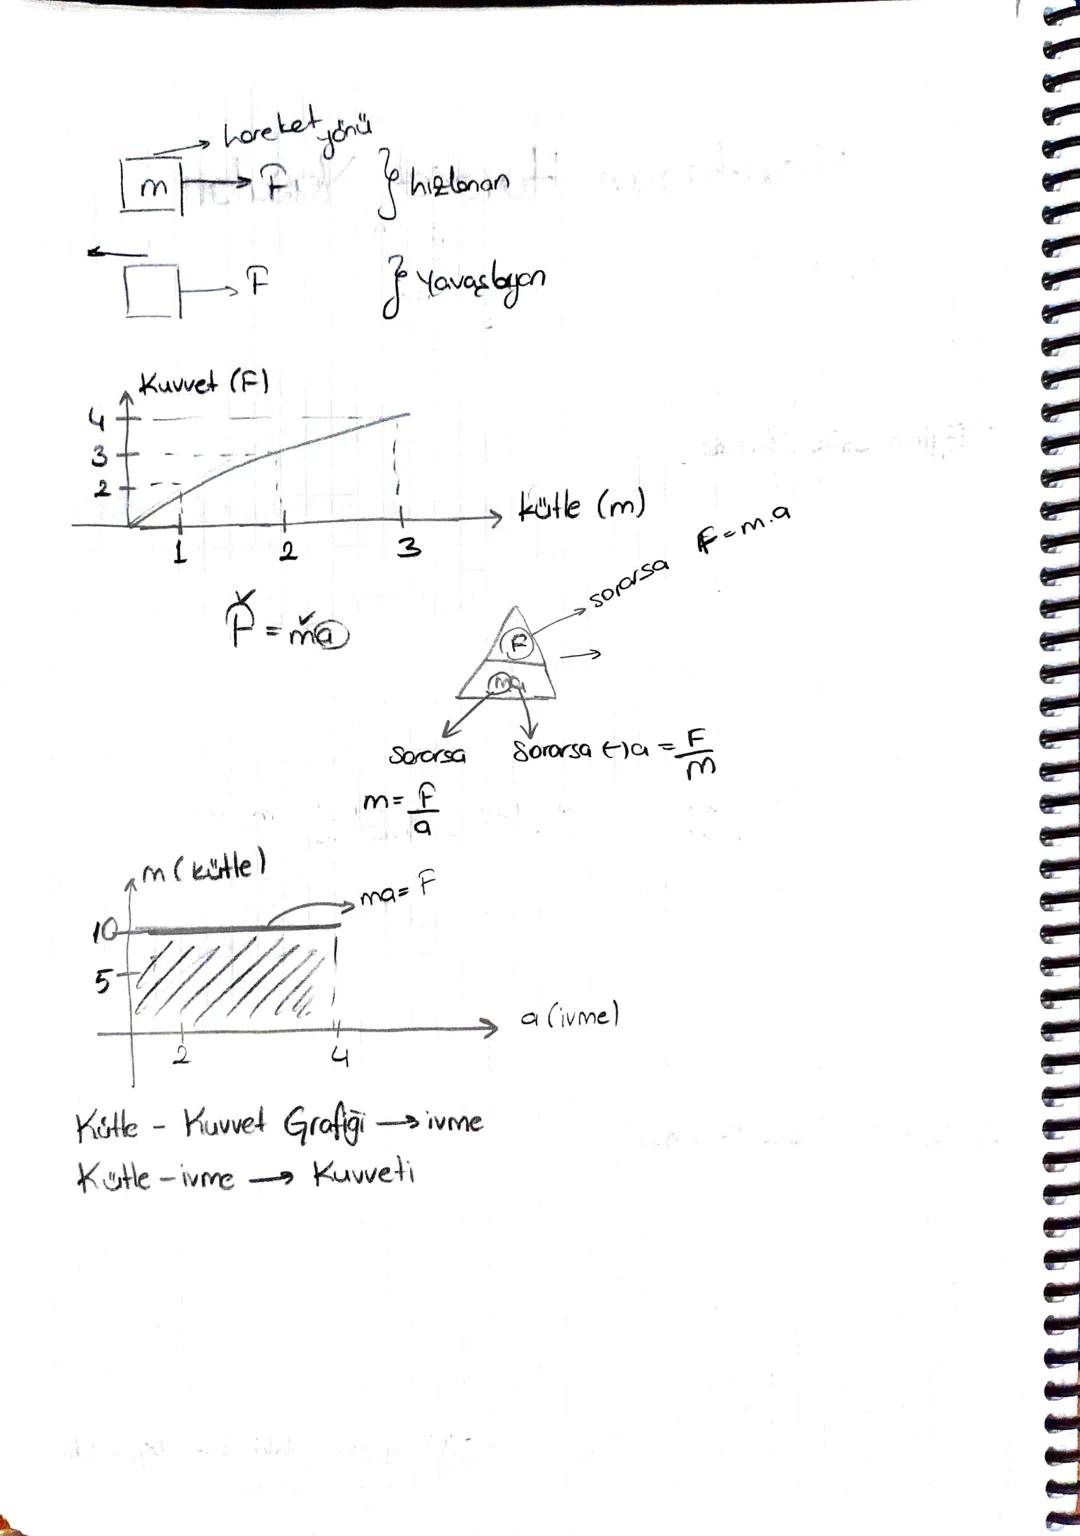 hareket yönü
m F } hızlanan
F } Yavaşlayan
Kuvvet (F)
4
3
2
kütle (m)
1 2 3
F = m.a
sorarsa
F = ma
F
ma
Sorarsa Sorarsa (-) a = F/m
m = F/a
m (kütle)
ma = F
10
5
a (ivme)
2 4
Kütle - Kuvvet Grafiği → ivme
Kütle - ivme → Kuvveti